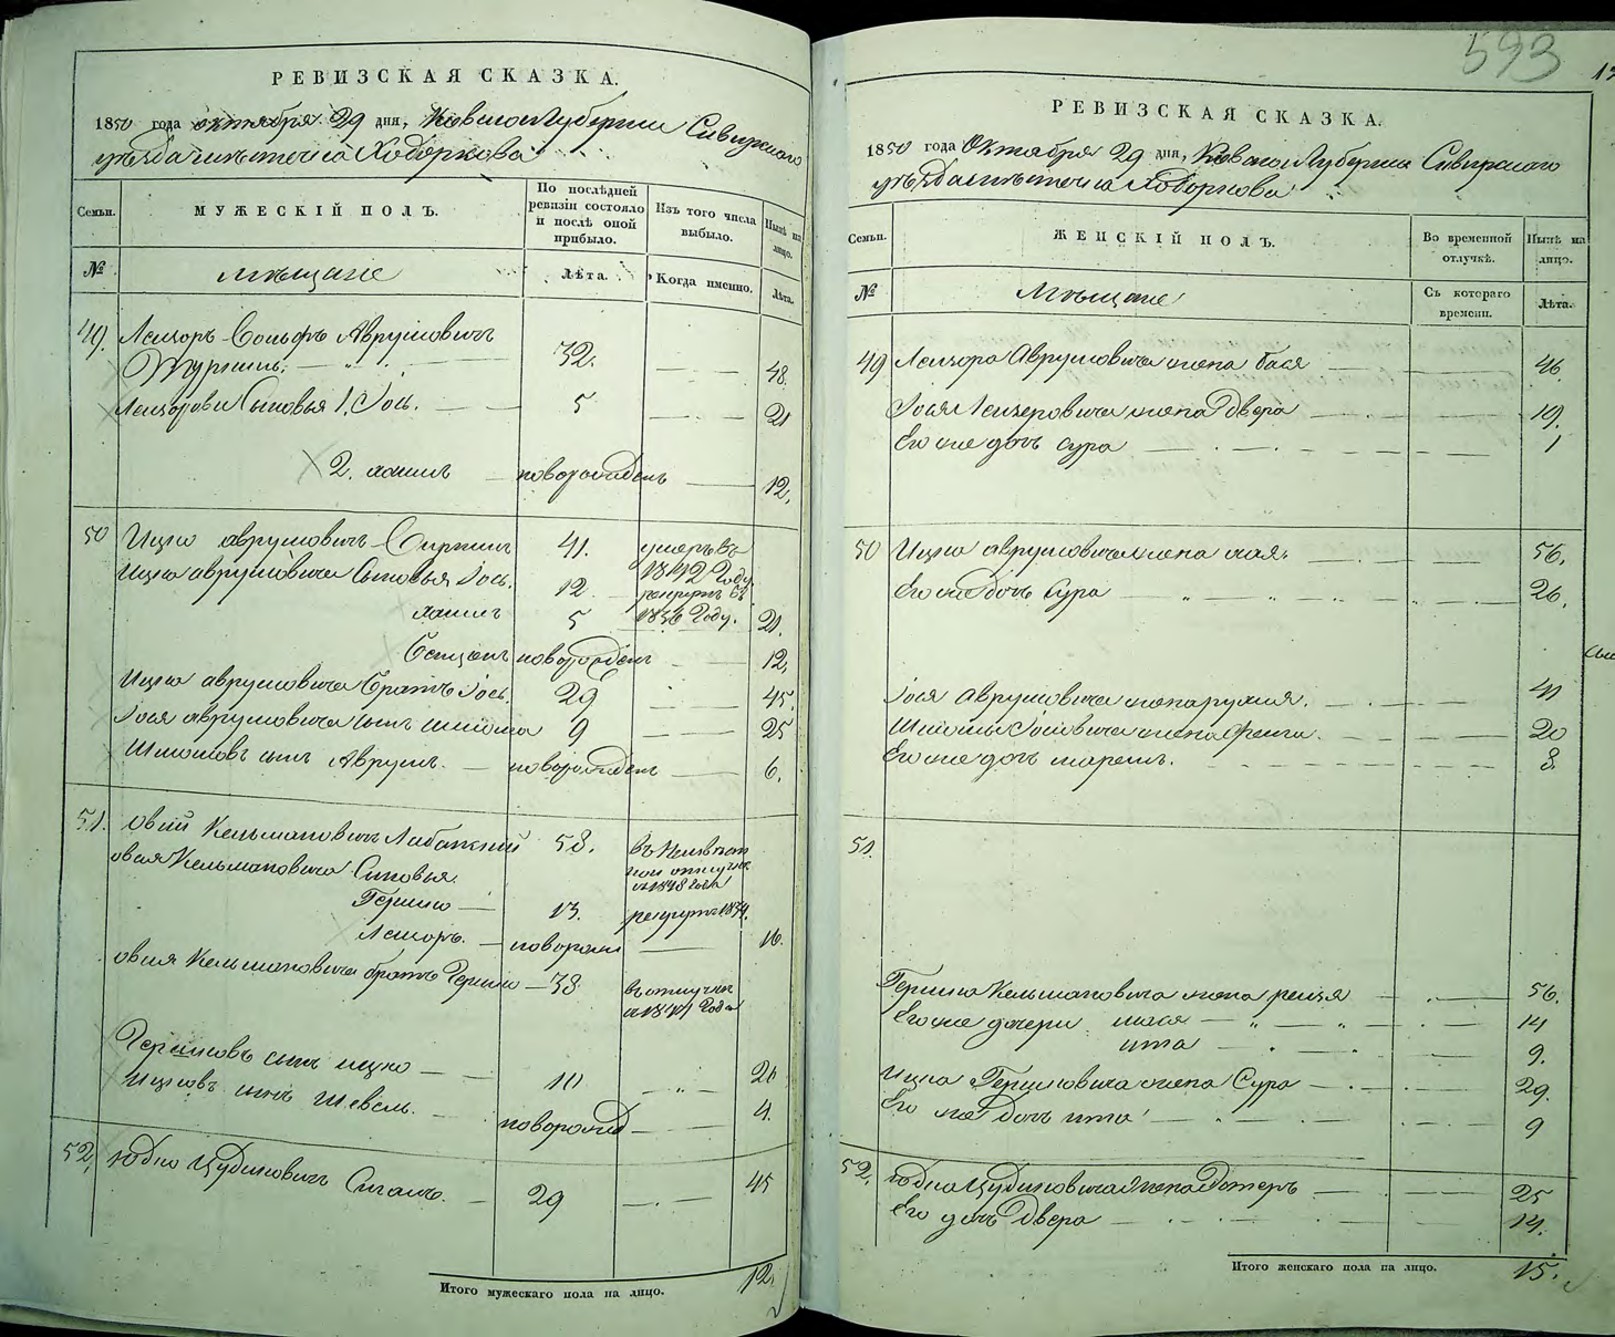 РЕВИЗСКАЯ СКАЗКА.
1850 года октября 29 дня, Киевской Губернии Сквирского
уѣзда мѣстечка Ходоркова
Семьи.
МУЖЕСКІЙ ПОЛЪ.
По послѣдней ревизіи состояло и послѣ оной прибыло.
Изъ того числа выбыло.
Нынѣ на лицо.
№
мѣщане
Лѣта.
Когда именно.
Лѣта.
49. Лейзоръ Аврумовичъ
32. 48.
Лейзоровы Сыновья 1. Іось. 5 21
2. хаимъ новорожденъ 12.
50 Ицко аврумовичъ 41. умеръ въ 1842 Году.
Ицка аврумовича Сыновья Іось. 12 рекрутъ въ 1836 Году.
хаимъ 5 21.
Бенционъ новорожденъ 12,
Ицка аврумовича братъ Іось. 29 45.
Іося аврумовича сынъ шлиома 9 25
Шлиомовъ сынъ Аврумъ. новорожденъ 6.
51. овшій Кельмановичъ 58. въ отлучке
с 1848 года
овшия Кельмановича Сыновья.
Гершко 13. рекрутъ 1834.
Лейзоръ. новорожд 16.
овшия Кельмановича братъ Гершко 38 въ отлучке
Года
Гершковъ сынъ ицко 10 26
Ицковъ сынъ Шевель. новорожд 4.
52, юдко 29 45
Итого мужескаго пола на лицо. 12.
593
РЕВИЗСКАЯ СКАЗКА.
1850 года Октября 29 дня, Киевской Губернии Сквирского
уѣзда мѣстечка Ходоркова
Семьи.
ЖЕНСКІЙ ПОЛЪ.
Во временной отлучкѣ.
Нынѣ на лицо.
№
Мѣщане
Съ котораго времени.
Лѣта.
49 Лейзора Аврумовича жена бася 46.
Іося Лейзеровича жена Двера 19.
Его же дочь сура 1
50 Ицка аврумовича жена хая. 56.
Его же дочь Сура 26.
Іося аврумовича жена рухля. 41
Шлиомы Іосиовича жена фейга. 20
Его же дочь марем. 8.
51.
Гершка Кельмановича жена рейзя 56.
Его же дочери 14
ита 9.
Ицка Гершковича жена Сура 29.
Его же дочь ита 9
52. юдка жена Эстеръ 25
Его дочь Двера 14.
Итого женскаго пола на лицо. 15.